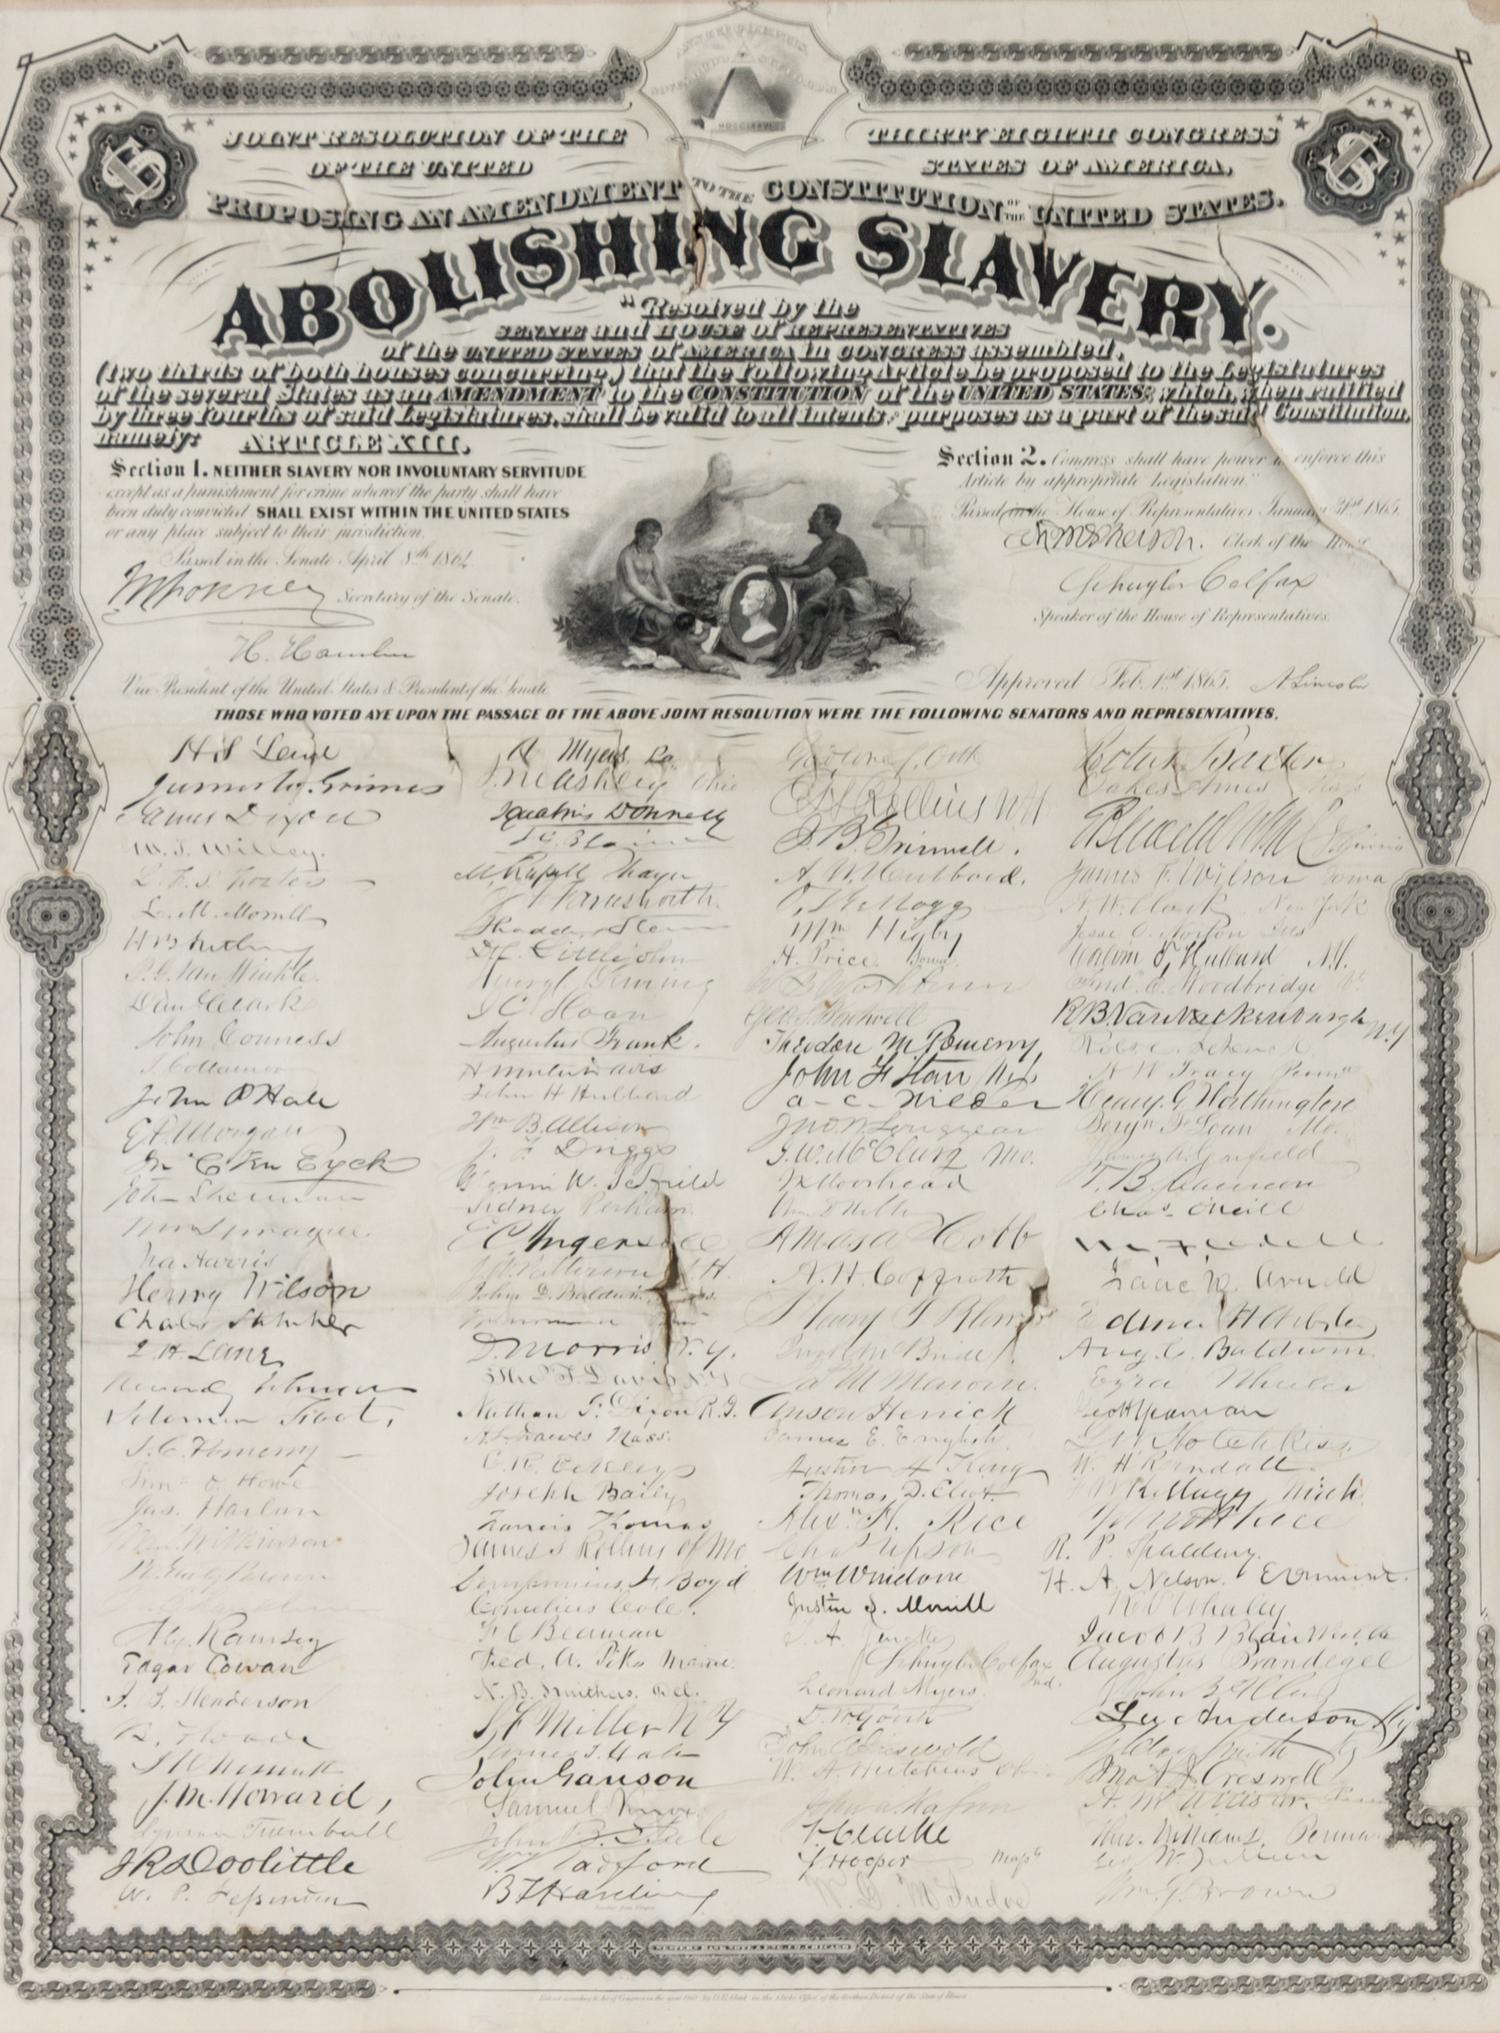 ANNUIT CŒPTIS
MDCCLXXVI
JOINT RESOLUTION OF THE THIRTY EIGHTH CONGRESS
OF THE UNITED STATES OF AMERICA,
PROPOSING AN AMENDMENT TO THE CONSTITUTION OF THE UNITED STATES.
ABOLISHING SLAVERY.
"Resolved by the
SENATE and HOUSE of REPRESENTATIVES
of the UNITED STATES of AMERICA in CONGRESS assembled,
(two thirds of both houses concurring,) that the following Article be proposed to the Legislatures
of the several States as an AMENDMENT to the CONSTITUTION of the UNITED STATES; which, when ratified
by three fourths of said Legislatures, shall be valid to all intents & purposes as a part of the said Constitution,
namely: ARTICLE XIII.
Section 1. NEITHER SLAVERY NOR INVOLUNTARY SERVITUDE
except as a punishment for crime whereof the party shall have
been duly convicted SHALL EXIST WITHIN THE UNITED STATES
or any place subject to their jurisdiction.
Passed in the Senate April 8th 1864
J W Forney Secretary of the Senate.
H. Hamlin
Vice President of the United States & President of the Senate
Section 2. Congress shall have power to enforce this
Article by appropriate legislation."
Passed in the House of Representatives January 31st 1865.
McPherson. Clerk of the House
Schuyler Colfax
Speaker of the House of Representatives.
Approved Feb. 1st 1865. A Lincoln
THOSE WHO VOTED AYE UPON THE PASSAGE OF THE ABOVE JOINT RESOLUTION WERE THE FOLLOWING SENATORS AND REPRESENTATIVES.
H S Lane
James W. Grimes
James Dixon
W. T. Willey.
L. F. S. Foster
L. M. Morrill
H B Anthony
P. G. Van Winkle.
Dan Clark
John Conness
J. Collamer
John P Hale
E D Morgan
J C Ten Eyck
John Sherman
Wm Sprague
Ira Harris
Henry Wilson
Charles Sumner
J. H. Lane
Reverdy Johnson
Solomon Foot,
S. C. Pomeroy
T. O. Howe
Jas. Harlan
Wilkinson
B. Gratz Brown
Alex. Ramsey
Edgar Cowan
J. B. Henderson
B. F. Wade
J W Nesmith
J. M. Howard,
Lyman Trumbull
J R Doolittle
W. P. Fessenden
A Myers, Pa
J M Ashley Ohio
Ignatius Donnelly
J. G. Blaine
J F Farnsworth
Thaddeus Stevens
D. C. Littlejohn
Henry C Deming
J C Sloan
Augustus Frank.
H Winter Davis
John H Hubbard
Wm B. Allison
J. F Driggs
Glenni W. Scofield
Sidney Perham
E C Ingersoll
J W Patterson N H.
John D. Baldwin, Mass.
D. Morris N. Y.
Tho. T Davis N Y
Nathan F. Dixon R. I.
H L Dawes Mass.
E. R. Eckley
Joseph Baily
Francis Thomas
James S Rollins of Mo
Sempronius H. Boyd
Cornelius Cole.
F C Beaman
Fred. A. Pike Maine.
N. B. Smithers. Del.
S F Miller N Y
James T. Hale
John Ganson
Samuel Knox
John B. Steele
W. Radford
B F Harding
Godlove S. Orth
E H Rollins N H
J. B. Grinnell.
A. W. Hubbard.
O. Kellogg
Wm Higby
H. Price Iowa
E B Washburne
Geo. S. Boutwell
Theodore M. Pomeroy,
John F Starr N J
A. C. Wilder
Jno. W. Longyear
J. W. McClurg Mo.
J K Moorhead
Amasa Cobb
A. H. Coffroth
Henry T Blow
J M Marvin.
Anson Herrick
James E. English.
Austin A King
Thomas D. Eliot.
Alexr H. Rice
Chas Upson
Wm Windom
Justin S. Morrill
T. A. Jenckes
Schuyler Colfax Ind.
Leonard Myers
D. W Gooch
John A Griswold
W. A Hutchins Oh
John A. Kasson
F Clarke
S Hooper Masss
Portus Baxter
Oakes Ames Mass
James F. Wilson Iowa
A. W. Clark New York
Jesse O. Norton Ills
Calvin T. Hulburd N. Y.
Fred. E. Woodbridge Vt
R B Van Valkenburgh N. Y
Robt C Schenck
H W Tracy Penna
Henry G Worthington
Benjn F Loan Mo.
James A. Garfield
T. B. Shannon
Chas. O'Neill
Wm D Kelley
Isaac N. Arnold
Edwin H Webster
Aug. C. Baldwin
Ezra Wheeler
Geo H Yeaman
G W Hotchkiss
W. H Randall
F W Kellogg Mich.
R. P. Spalding.
H. A. Nelson.
K V Whaley
Jacob B Blair
Augustus Brandegee
John B Alley
Lu Anderson Ky
Green Clay Smith Ky
Jno A J Creswell
Tho. Williams. Penna
Geo W. Julian
Wm G. Brown
WESTERN BANK NOTE & ENG. CO. CHICAGO